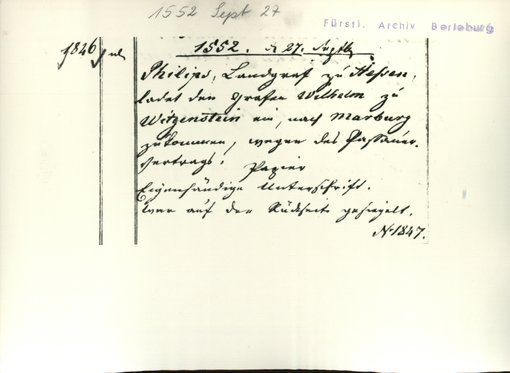 1552 Sept 27
Fürstl. Archiv Berleburg
1846
1552. d. 27. Septb.
Philips, Landgraf zu Hessen,
ladet den Grafen Wilhelm zu
Witgenstein ein, nach Marburg
zukommen, wegen des Passauer
Vertrags.
Papier
Eigenhändige Unterschrift.
war auf der Rückseite gesiegelt.
N. 1847.